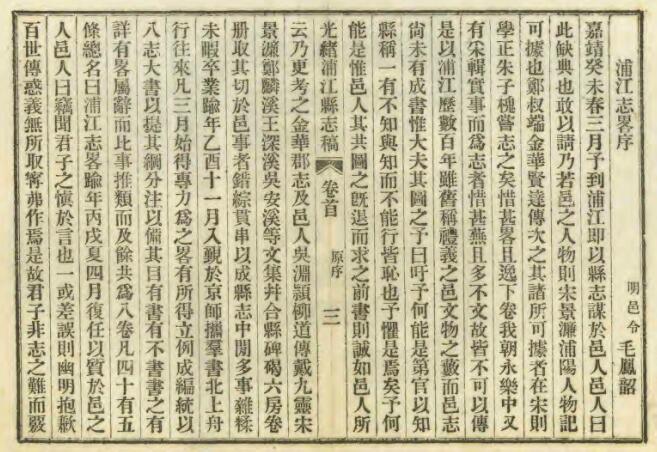 浦江志畧序
明邑令毛鳳韶
嘉靖癸未春三月予到浦江即以縣志謀於邑人邑人曰
此缺典也敢以請乃若邑之人物則宋景濂浦陽人物記
可據也鄭叔端金華賢達傳次之其諸所可據者在宋則
學正朱子槐嘗志之矣惜甚畧且逸下卷我朝永樂中又
有宋輯實事而爲志者惜甚蕪且多不文故皆不可以傳
是以浦江歷數百年雖舊稱禮義之邑文物之藪而邑志
尚未有成書惟大夫其圖之予曰吁予何能是第官以知
縣稱一有不知與知而不能行皆恥也予懼是焉矣予何
能是惟邑人其共圖之旣退而求之前書則誠如邑人所
光緒浦江縣志稿
卷首
原序
三
云乃更考之金華郡志及邑人吳淵頴柳道傳戴九靈宋
景濂鄭麟溪王深溪吳安溪等文集幷合縣碑碣六房卷
册取其切於邑事者錯綜貫串以成縣志中間多事雜糅
未暇卒業踰年乙酉十一月入覲於京師攜羣書北上舟
行往來凡三月始得專力爲之畧有所得立例成編統以
八志大書以提其綱分注以備其目有書有不書書之有
詳有畧屬辭而比事推類而及餘共爲八卷凡四十有五
條總名曰浦江志畧踰年丙戌夏四月復任以質於邑之
人邑人曰竊聞君子之愼於言也一或差誤則幽明抱歉
百世傳惑義無所取寧弗作焉是故君子非志之難而覈